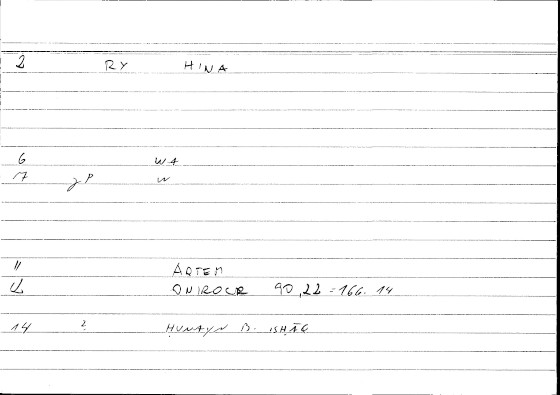 2 RY HINA
6 WA
7 gP W
" ARTEM
12 ONIROCR 90,22 = 166.14
14 2 ḤUNAYN B. ISḤĀQ